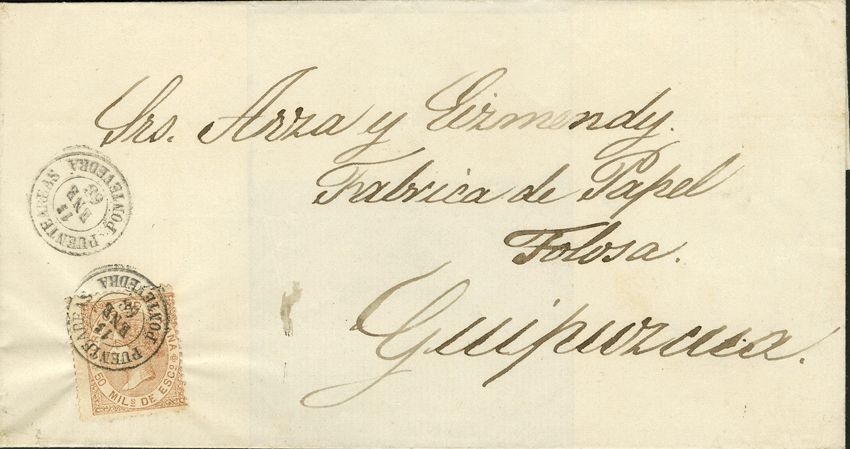 Srs. Arza y Eizmendy.
Fabrica de Papel
Tolosa.
Guipuzcua.
PUENTEAREAS PONTEVEDRA
11
ENE
69
PONTEVEDRA
ENE
69
50 MILS DE ESCO